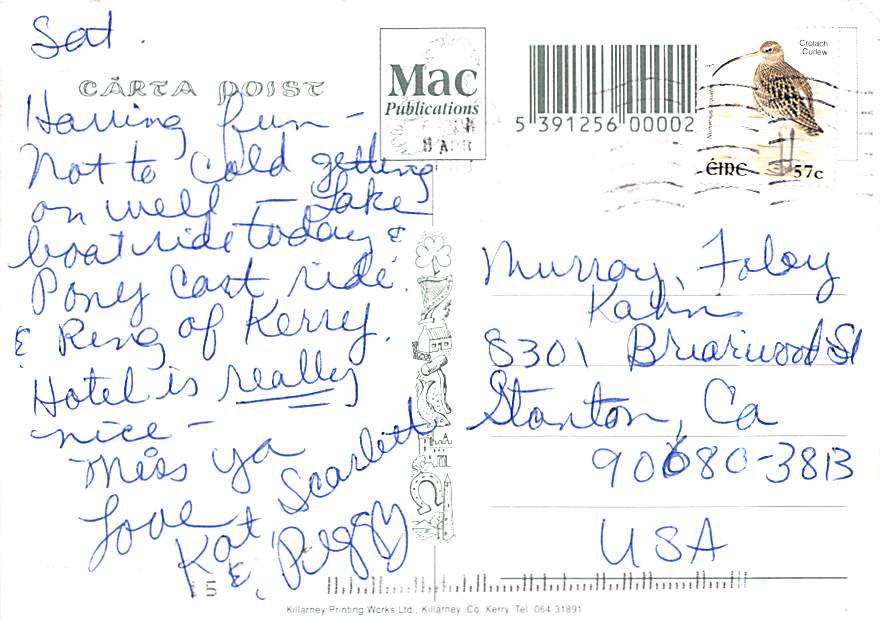 Sat.
CÁRTA POIST
Having fun -
Not to Cold getting
on well - Lake
boat ride today &
Pony Cart ride.
& Ring of Kerry.
Hotel is really
nice -
Miss ya
Love
Kat, Scarlett
& Peggy
Mac
Publications
8 APR
5 391256 00002
Crotach
Curlew
ÉIRE 57c
Murray, Foley
Kahn
8301 Briarwood St
Stanton, Ca
90680-3813
USA
Killarney Printing Works Ltd., Killarney, Co. Kerry. Tel. 064 31891